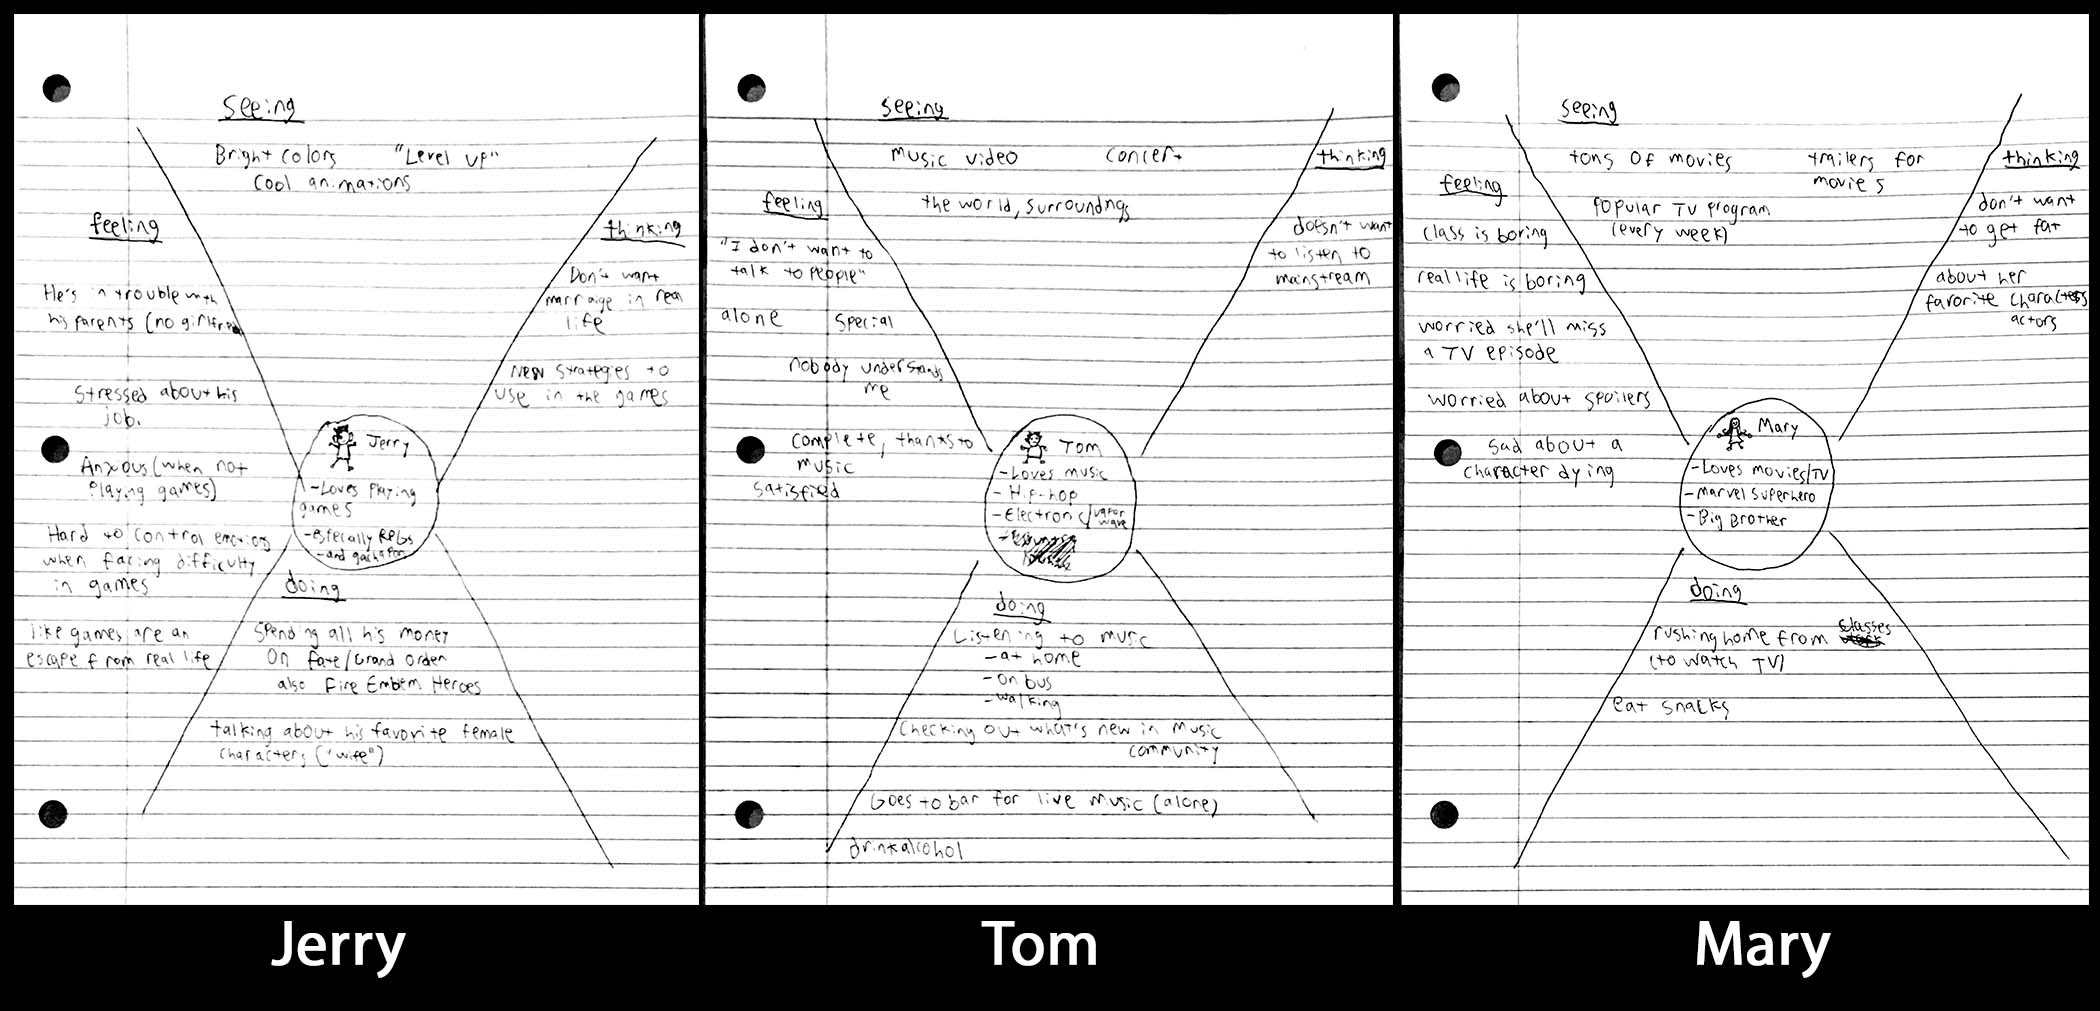 seeing
Bright colors "Level up"
cool animations
feeling
He's in trouble with
his parents (no girlfriend
Stressed about his
job.
Anxious (when not
playing games)
Hard to control emotions
when facing difficulty
in games
like games are an
escape from real life
thinking
Don't want
marraige in real
life
New strategies to
use in the games
Jerry
-Loves playing
games
-especially RPGs
-and gachapon
doing
Spending all his money
on Fate/Grand Order
also Fire Emblem Heroes
talking about his favorite female
characters ("wife")
Jerry
seeing
music video concert
the world, surroundings
feeling
"I don't want to
talk to people"
alone special
nobody understands
me
complete, thanks to
music
satisfied
thinking
doesn't want
to listen to
mainstream
Tom
-Loves music
-Hip-hop
-Electronic/vapor
wave
doing
Listening to music
-at home
-on bus
-walking
Checking out what's new in music
community
Goes to bar for live music (alone)
drink alcohol
Tom
seeing
tons of movies trailers for
movies
popular TV program
(every week)
feeling
class is boring
real life is boring
worried she'll miss
a TV episode
worried about spoilers
sad about a
character dying
thinking
don't want
to get fat
about her
favorite characters
actors
Mary
-Loves movies/TV
-Marvel superhero
-Big Brother
doing
rushing home from classes
(to watch TV)
eat snacks
Mary